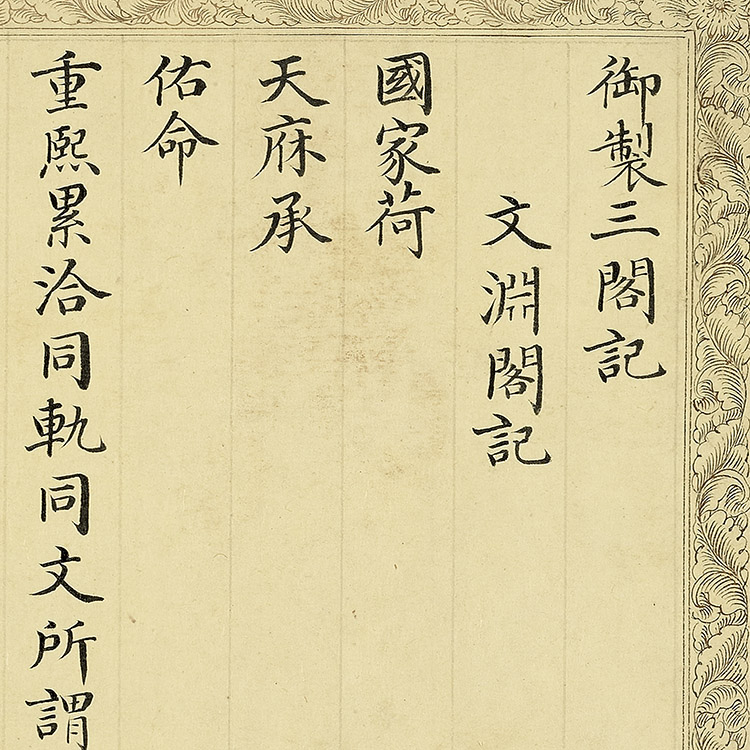 御製三閣記
文淵閣記
國家荷
天庥承
佑命
重熙累洽同軌同文所謂